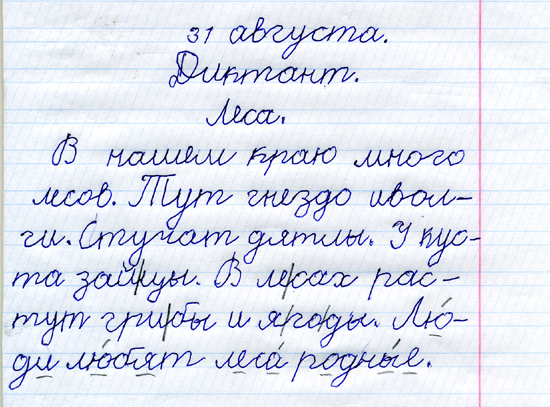 31 августа.
Диктант.
Леса.
В нашем краю много
лесов. Тут гнездо ивол-
ги. Стучат дятлы. У кус-
та зайцы. В лесах рас-
тут грибы и ягоды. Лю-
ди любят леса родные.